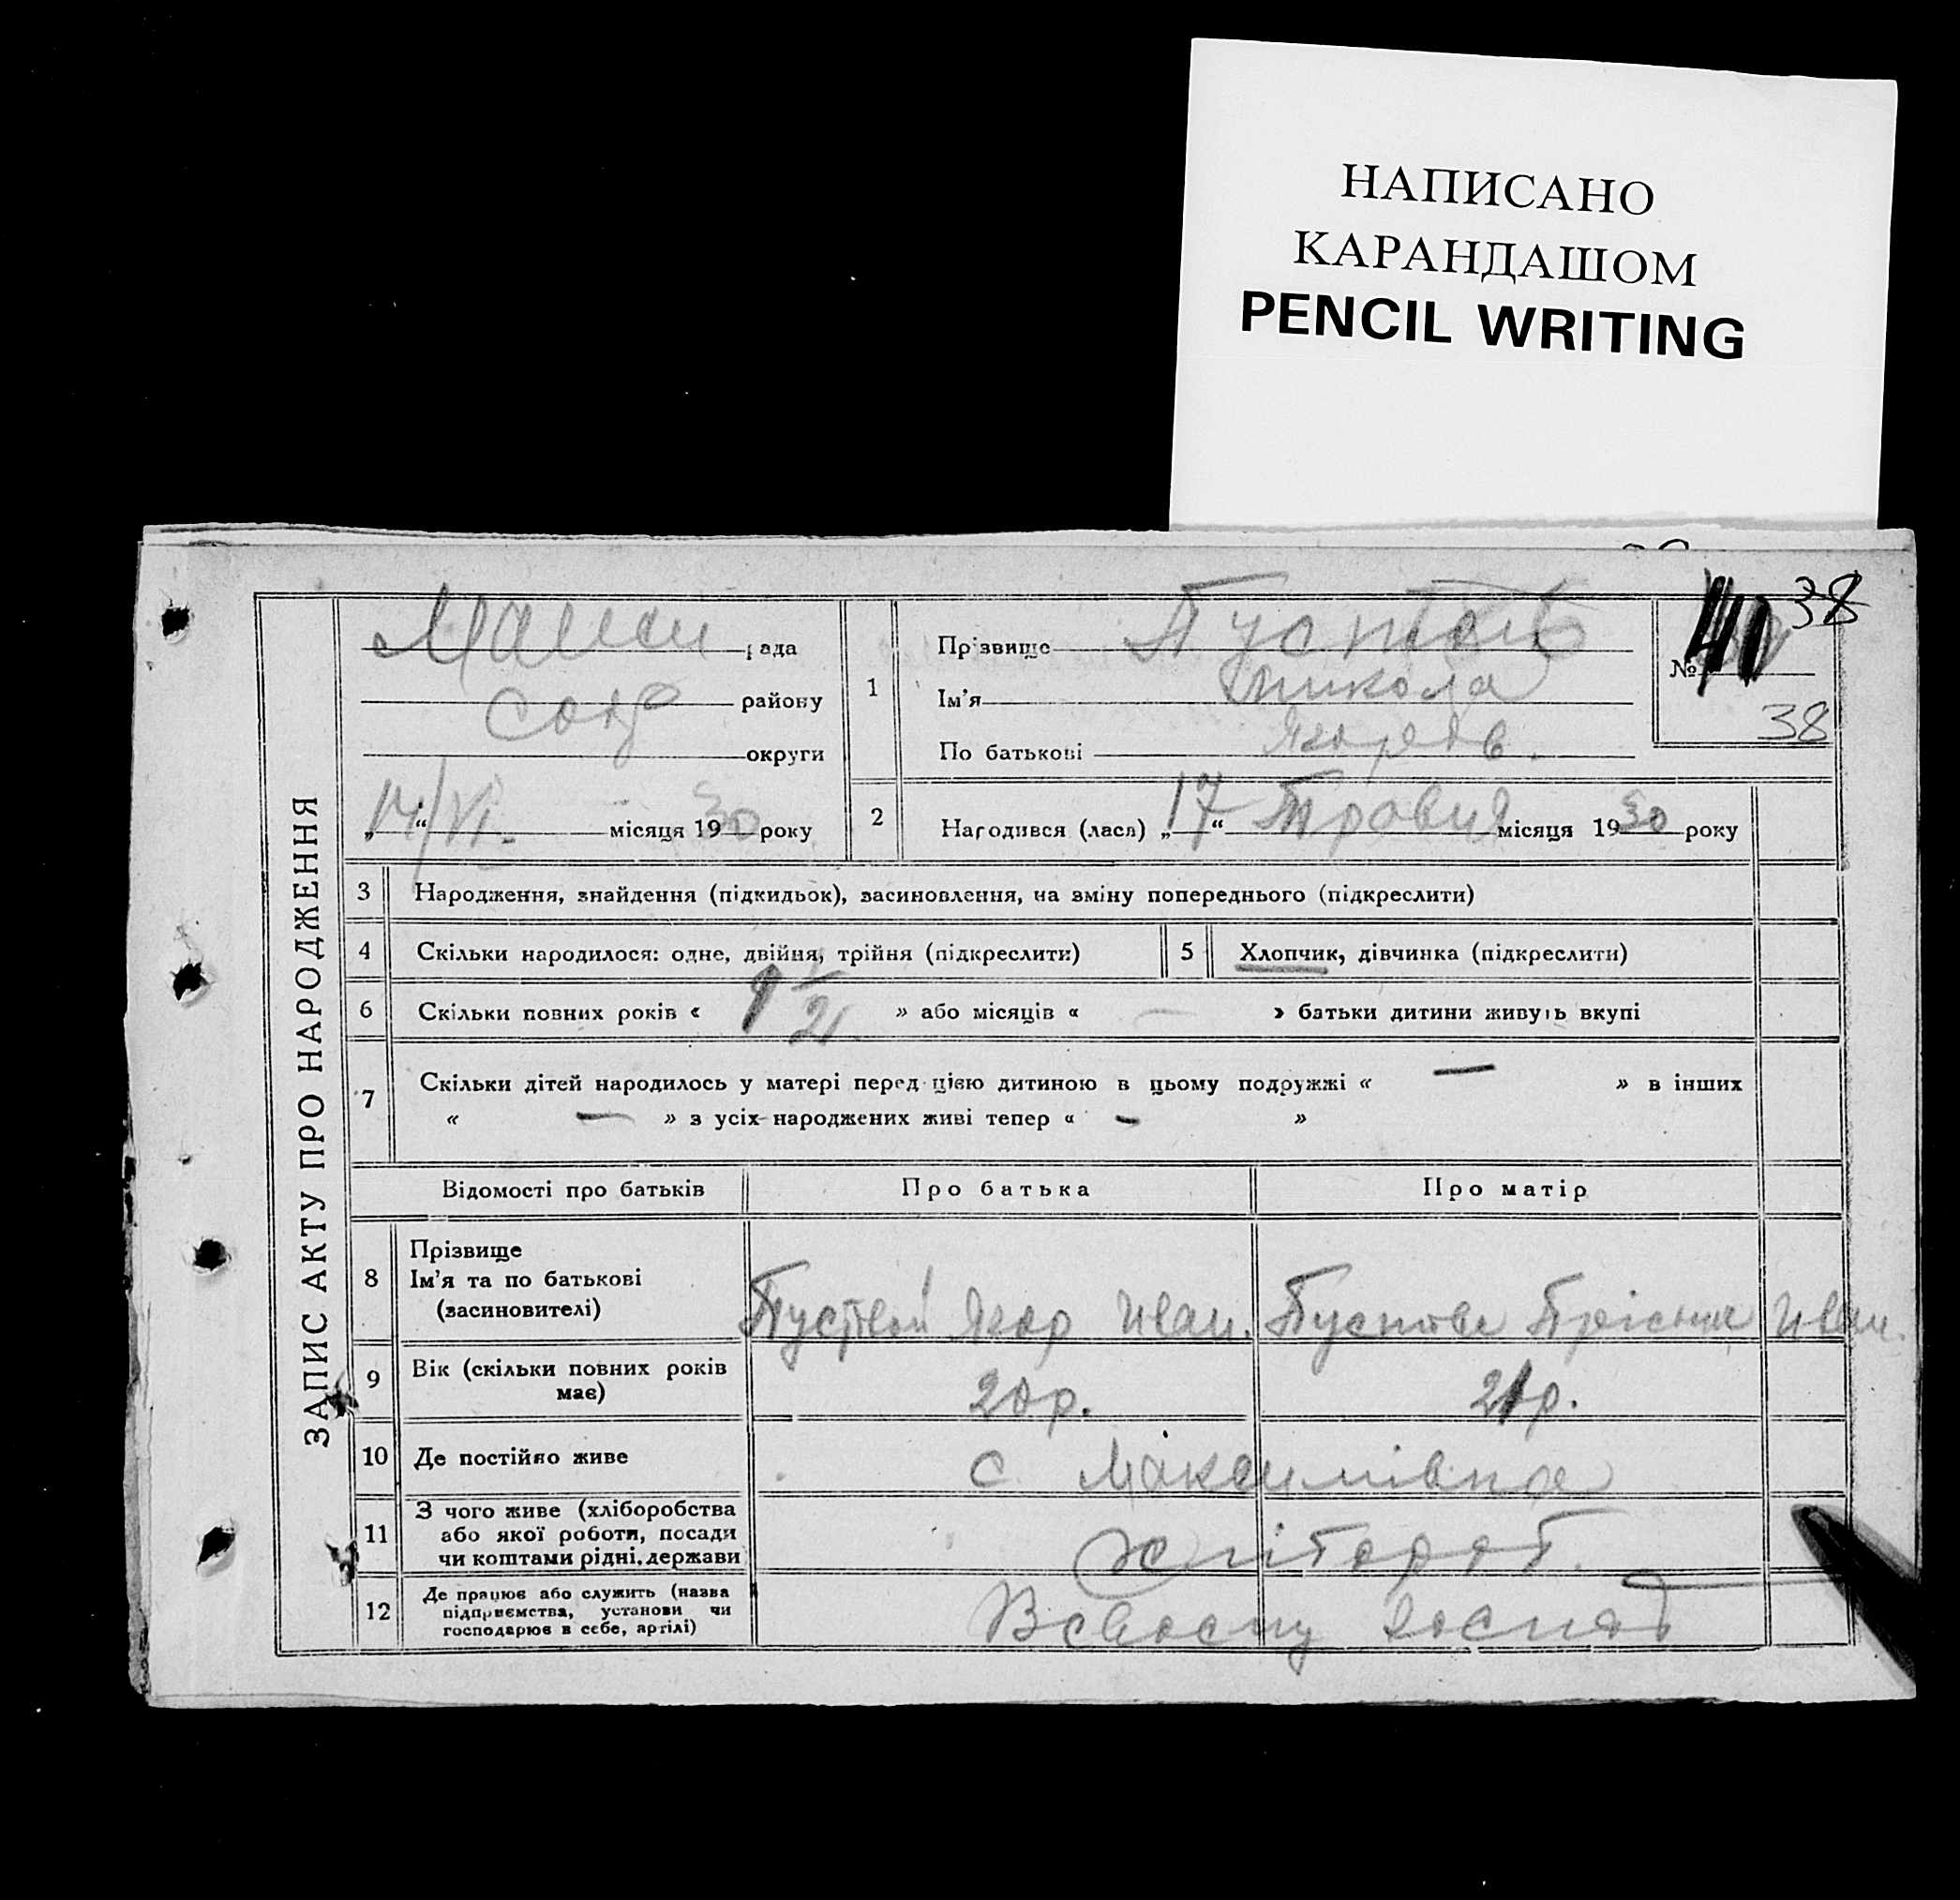 НАПИСАНО
КАРАНДАШОМ
PENCIL WRITING
38
рада
району
округи
„14/VI.“ місяця 1930 року
1
Прізвище
Ім’я Микола
По батькові Якорев.
№ 40
38
2
Народився (лася) „17“ Травня місяця 1930 року
ЗАПИС АКТУ ПРО НАРОДЖЕННЯ
3 Народження, знайдення (підкидьок), засиновлення, на зміну попереднього (підкреслити)
4 Скільки народилося: одне, двійня, трійня (підкреслити)
5 Хлопчик, дівчинка (підкреслити)
6 Скільки повних років « » або місяців « — » батьки дитини живуть вкупі
7 Скільки дітей народилось у матері перед цією дитиною в цьому подружжі « — » в інших
« — » з усіх народжених живі тепер « — »
Відомості про батьків Про батька Про матір
8 Прізвище
Ім’я та по батькові
(засиновителі)
Ягор Иван. Пустова Иван.
9 Вік (скільки повних років
має)
20 р. 21 р.
10 Де постійно живе
с Максимівка
11 З чого живе (хліборобства
або якої роботи, посади
чи коштами рідні, держави
хлібороб.
12 Де працює або служить (назва
підприємства, установи чи
господарює в себе, артілі)
В своєму госпад